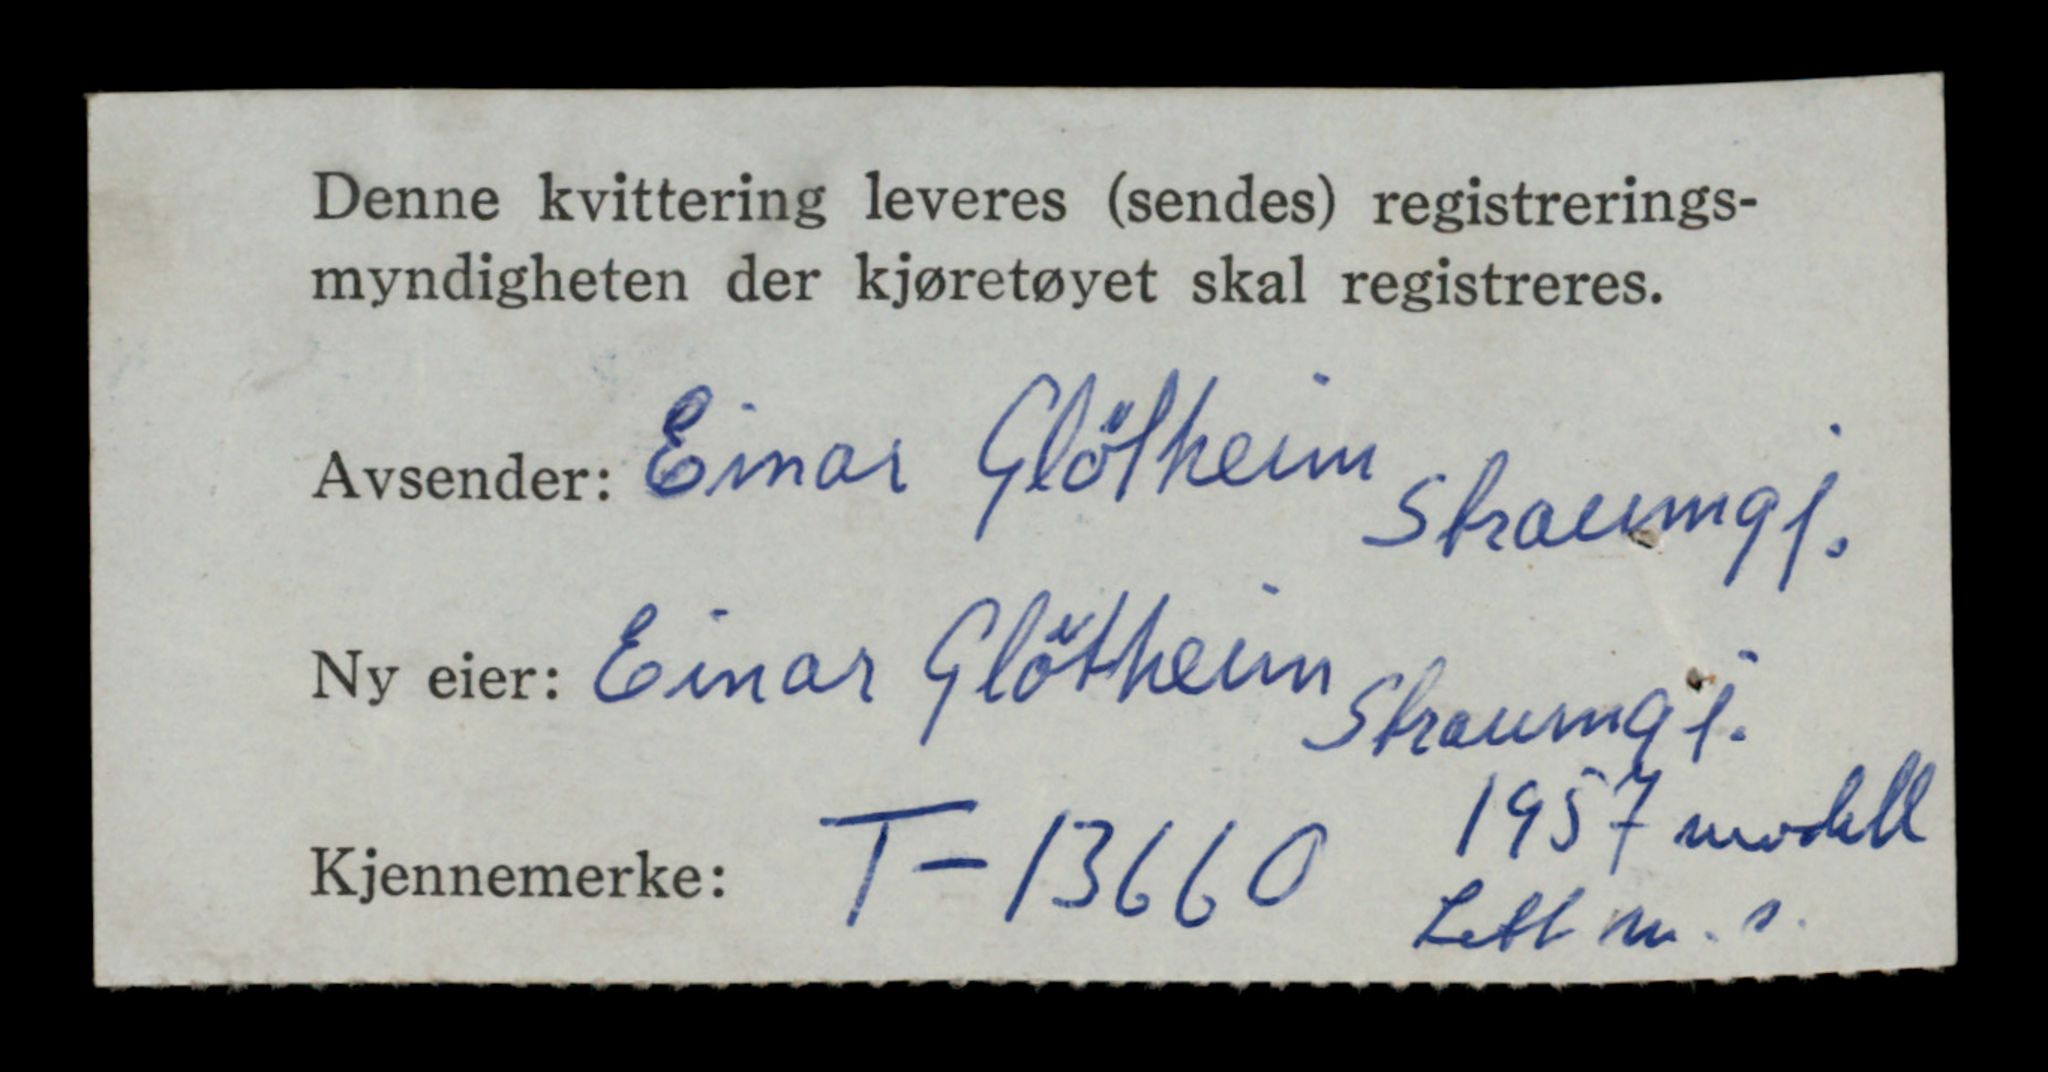 Denne kvittering leveres (sendes) registrerings-
myndigheten der kjøretøyet skal registreres.
Avsender: Einar Glötheim Straumgj.
Ny eier: Einar Glötheim Straumgj.
Kjennemerke: T-13660 1957 modell
Lett m. s.